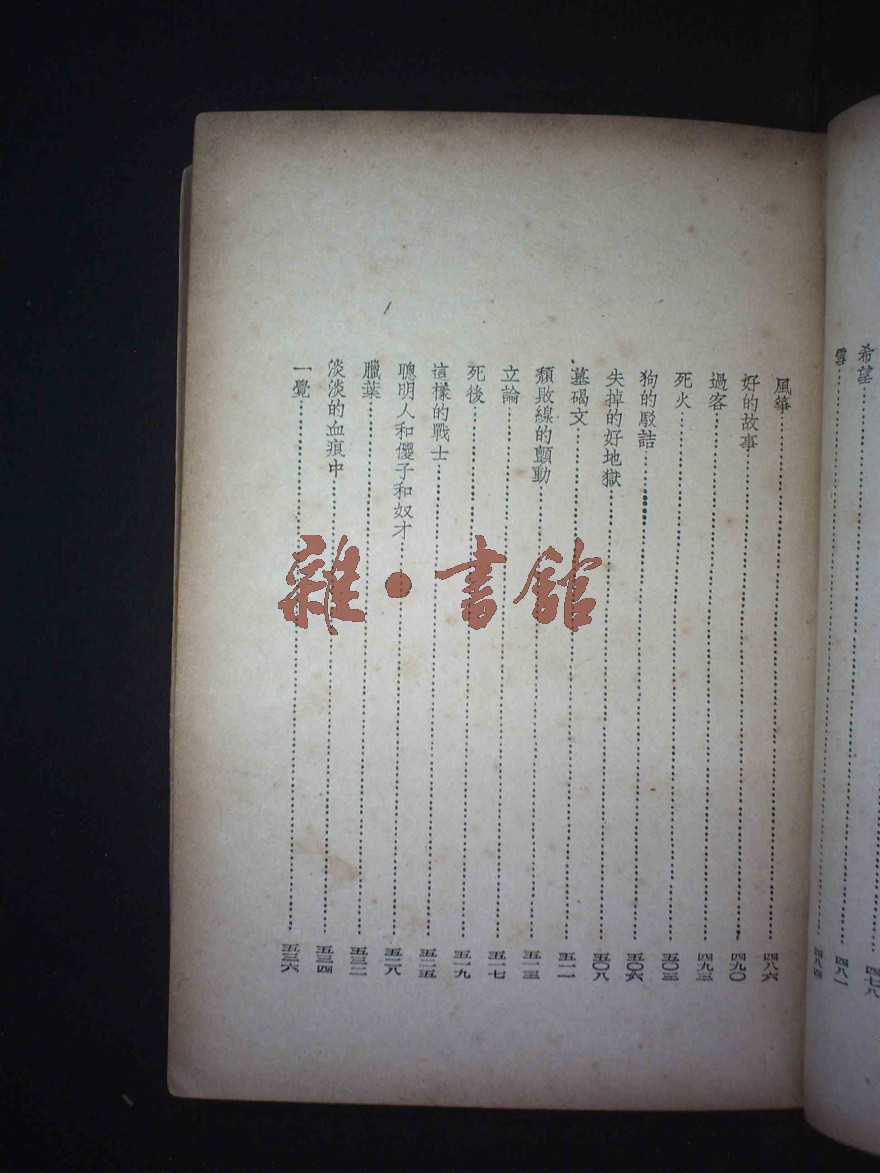 四七八
希望……四八一
雪……四八四
風箏……四八六
好的故事……四九〇
過客……四九三
死火……五〇三
狗的駁詰……五〇六
失掉的好地獄……五〇八
墓碣文……五一一
頹敗線的顫動……五一三
立論……五一七
死後……五一九
這樣的戰士……五二五
聰明人和儍子和奴才……五二八
臘葉……五三二
淡淡的血痕中……五三四
一覺……五三六
雜·書館